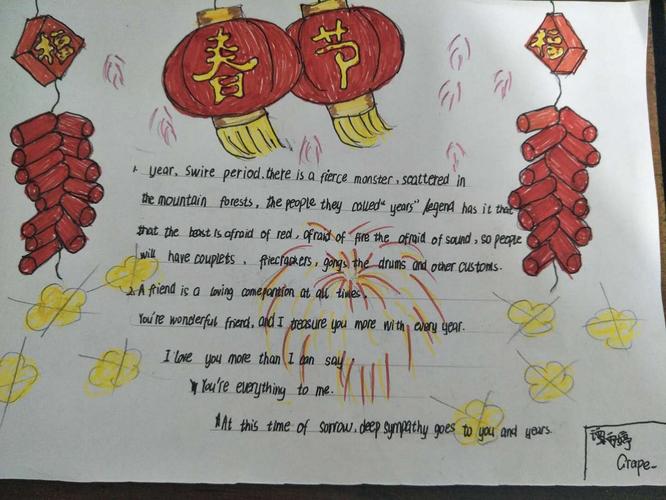 福
春节
福
1. year, swire period.there is a fierce monster, scattered in
the mountain forests, the people they called "years" legend has it that
that the beast is afraid of red, afraid of fire the afraid of sound, so people
will have couplets, friecrackers, gongs the drums and other customs.
2. A friend is a loving comepantion at all times.
You're wonderful friend, and I treasure you more with every year.
I love you more than I can say,
You're everything to me.
At this time of sorrow, deep sympathy goes to you and years.
婷
Grape-